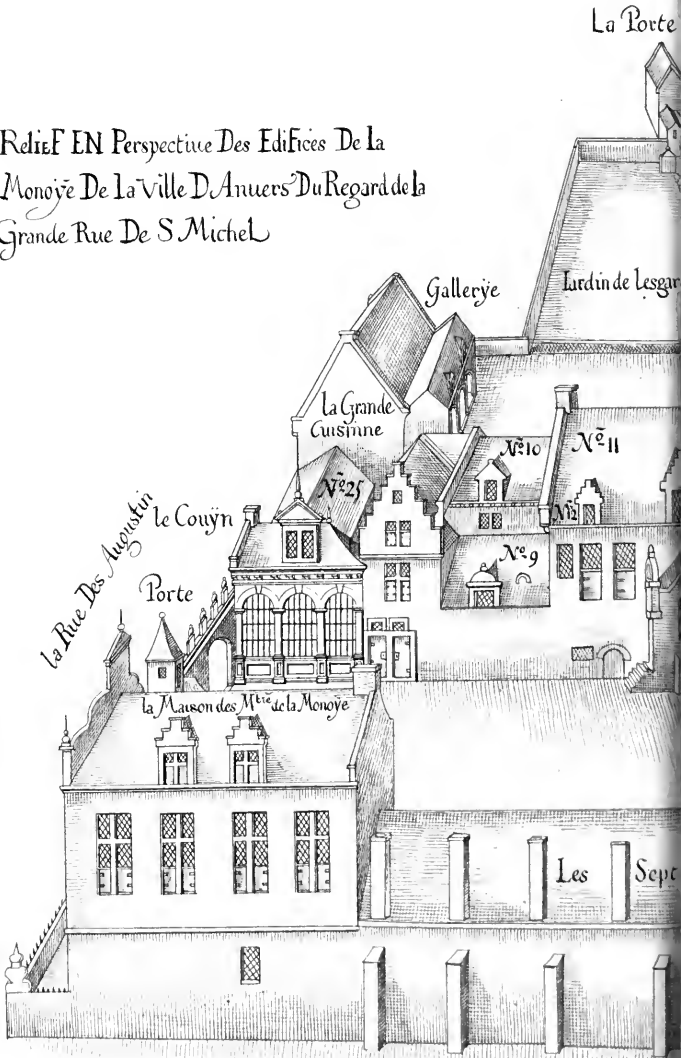 La Porte
RelieF EN Perspectiue Des EdiFices De la
Monoÿe De La Ville D Anuers Du Regard de la
Grande Rue De S Michel
Gallerÿe
Iardin de Lesgar
la Grande
Cuisinne
Nº 10
Nº 11
Nº 25
Nº 12
le Couÿn
Nº 9
la Rue Des Augustin
Porte
la Maison des Mtre de la Monoÿe
Les Sept